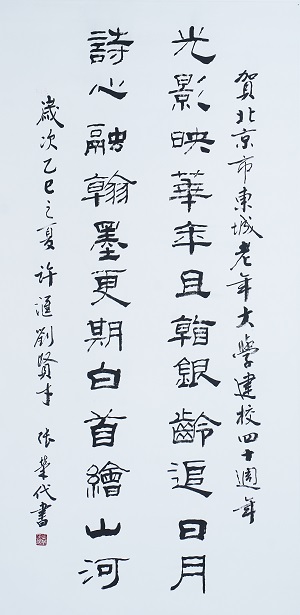 賀北京市東城老年大學建校四十週年
光影映華年且銀齡追日月
詩心融翰墨更期白首繪山河
歲次乙巳之夏許滙劉賢 張榮代書